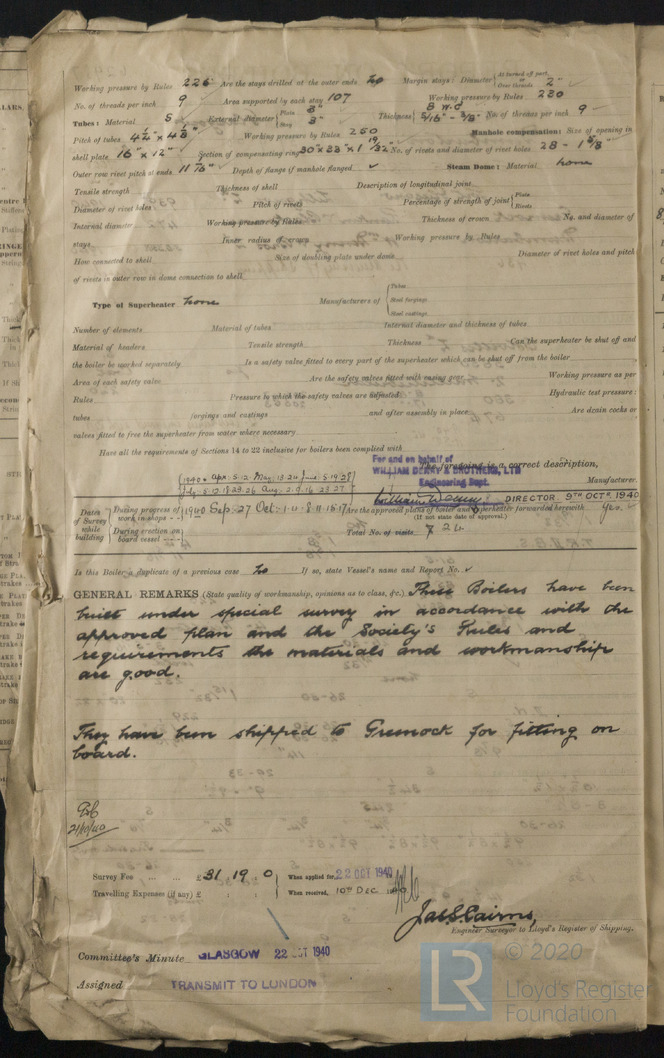 Working pressure by Rules 226 Are the stays drilled at the outer ends No Margin stays: Diameter { At turned off part, or Over threads 2"
No. of threads per inch 9 Area supported by each stay 107 Working pressure by Rules 230
Tubes: Material S External diameter { Plain 3" Stay 3" Thickness { 8 W.G 5/16" - 3/8" No. of threads per inch 9
Pitch of tubes 4 1/2" x 4 1/2" Working pressure by Rules 250 Manhole compensation: Size of opening in
shell plate 16" x 12" Section of compensating ring No. of rivets and diameter of rivet holes 28 -
Outer row rivet pitch at ends Depth of flange if manhole flanged Steam Dome: Material None
Tensile strength Thickness of shell Description of longitudinal joint
Diameter of rivet holes Pitch of rivets Percentage of strength of joint { Plate Rivets
Internal diameter Working pressure by Rules Thickness of crown No. and diameter of
stays Inner radius of crown Working pressure by Rules
How connected to shell Size of doubling plate under dome Diameter of rivet holes and pitch
of rivets in outer row in dome connection to shell
Type of Superheater None Manufacturers of { Tubes Steel forgings Steel castings
Number of elements Material of tubes Internal diameter and thickness of tubes
Material of headers Tensile strength Thickness Can the superheater be shut off and
the boiler be worked separately Is a safety valve fitted to every part of the superheater which can be shut off from the boiler
Area of each safety valve Are the safety valves fitted with easing gear Working pressure as per
Rules Pressure to which the safety valves are adjusted Hydraulic test pressure:
tubes forgings and castings and after assembly in place Are drain cocks or
valves fitted to free the superheater from water where necessary
Have all the requirements of Sections 14 to 22 inclusive for boilers been complied with
For and on behalf of
WILLIAM DENNY & BROTHERS, LTD The foregoing is a correct description,
Engineering Dept. Manufacturer.
1940 Apr. 5.12 May. 13.20 June. 5.19.28
July. 5.12.18.23.26 Aug. 2.9.16.23.27
William Denny, DIRECTOR 9TH OCTR 1940
Dates of Survey while building { During progress of work in shops - - 1940 Sep. 27 Oct. 1.11.8.11.16.17 Are the approved plans of boiler and superheater forwarded herewith Yes.
(If not state date of approval.)
During erection on board vessel - - - Total No. of visits 26
Is this Boiler a duplicate of a previous case No If so, state Vessel's name and Report No.
GENERAL REMARKS (State quality of workmanship, opinions as to class, &c.) These Boilers have been
built under special survey in accordance with the
approved plan and the Society's Rules and
requirements the materials and workmanship
are good.
They have been shipped to Greenock for fitting on
board.
21/10/40
Survey Fee ... ... £ 31 . 19 . 0 When applied for, 22 OCT 1940
Travelling Expenses (if any) £ : : When received, 10TH DEC 1940
Jas. S. Cairns,
Engineer Surveyor to Lloyd's Register of Shipping.
Committee's Minute GLASGOW 22 OCT 1940
Assigned TRANSMIT TO LONDON
© 2020
LR Lloyd's Register
Foundation